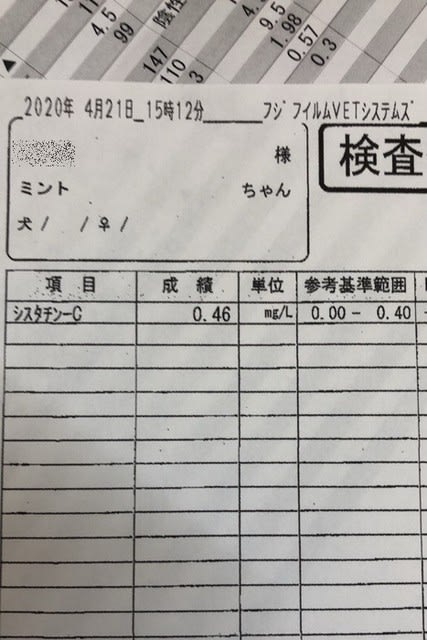 4.5
99
147
110
3
陰性
9.5
1.98
0.57
0.3
2020年 4月21日 15時12分 フジフイルムVETシステムズ
様
ミント ちゃん
犬 / / ♀ /
検査
項 目 成 績 単位 参考基準範囲
シスタチン-C 0.46 mg/L 0.00 - 0.40